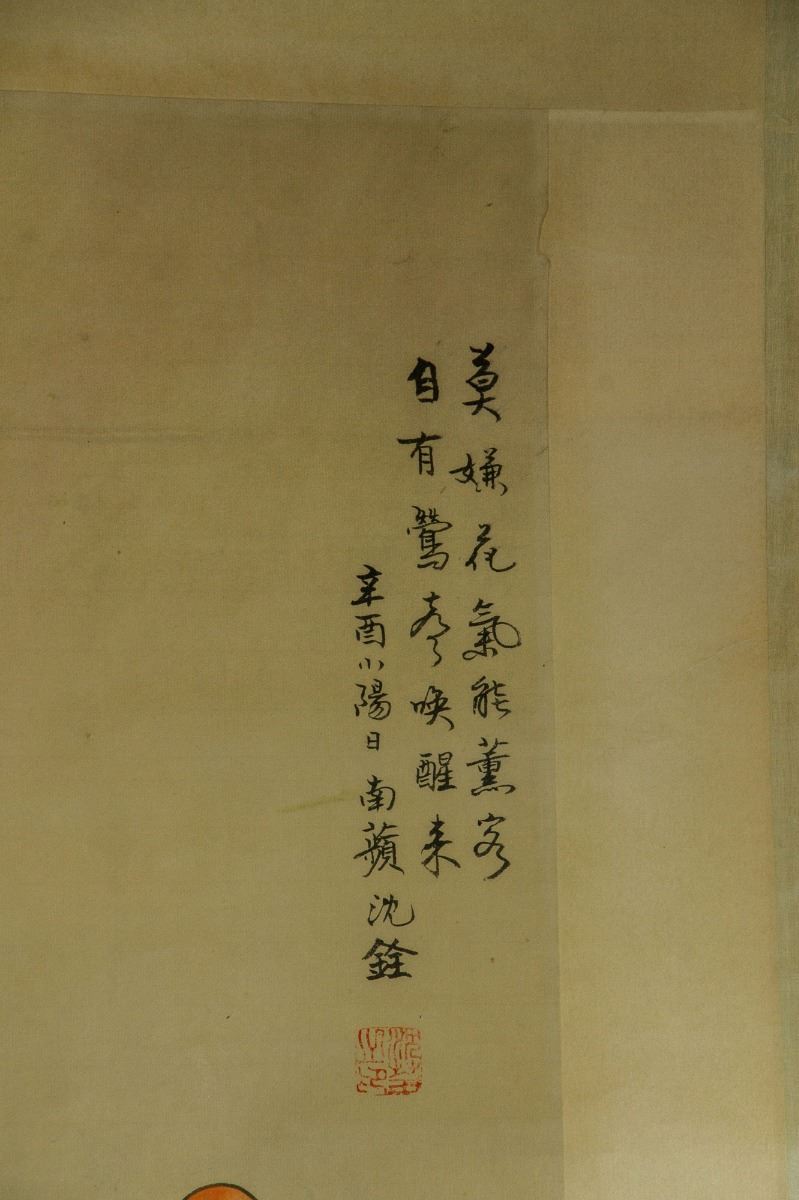 莫嫌花氣能薰客
自有鶯聲喚醒来
辛酉小陽日南蘋沈銓